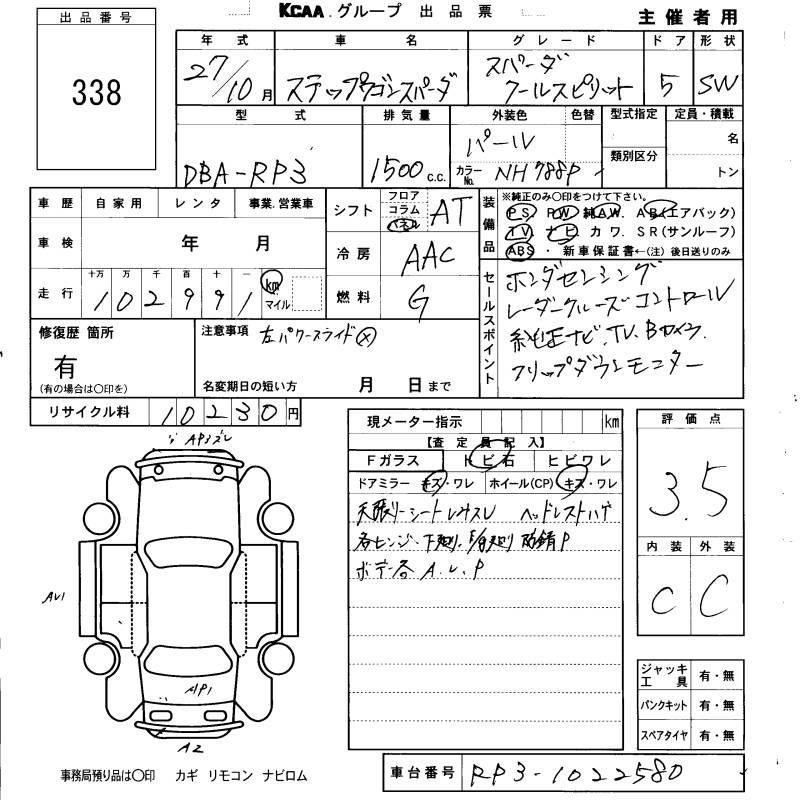 KCAA.グループ 出品票
主催者用
出品番号
338
年式 車名 グレード ドア 形状
27/10月 ステップワゴンスパーダ スパーダ クールスピリット 5 SW
型式 排気量 外装色 色替 型式指定 定員・積載
DBA-RP3 1500c.c. パール 名
類別区分
カラーNo. NH788P トン
車歴 自家用 レンタ 事業.営業車
車検 年 月
十万 万 千 百 十 一
走行 102991 km マイル
シフト フロア コラム パネル AT
冷房 AAC
燃料 G
装備品 ※純正のみ〇印をつけて下さい。
PS PW 純AW. AB(エアバック)
TV ナビ カワ. SR(サンルーフ)
ABS・新車保証書←(注)後日送りのみ
セールスポイント
ホンダセンシング
レーダークルーズコントロール
純正ナビ.TV.Bカメラ.
フリップダウンモニター
修復歴 箇所
有
(有の場合は〇印を)
注意事項 左パワースライド
名変期日の短い方 月 日まで
リサイクル料 10230円
現メーター指示 km
【査定員記入】
Fガラス トビ石 ヒビワレ
ドアミラー キズ・ワレ ホイール(CP) キズ・ワレ
天張リーシート ヘッドレストハゲ
各ヒンジ、下廻り. 防錆P
ボデー各 A.U.P
評価点
3.5
内装 外装
C C
ジャッキ工具 有・無
パンクキット 有・無
スペアタイヤ 有・無
AU1
AP1
A2
事務局預り品は〇印 カギ リモコン ナビロム
車台番号 RP3-1022580